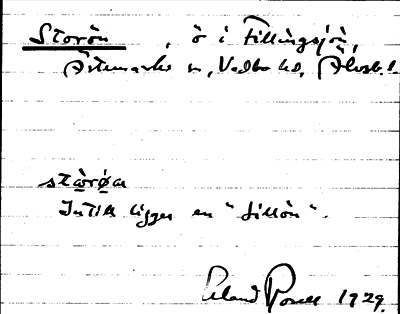 Storön, ö i Fillingsjön,
Ärtemarks sn, Vedbo hd, Älvsb. l.
störøa
Intill ligger en "Lillön".
Erland Rosell 1929.